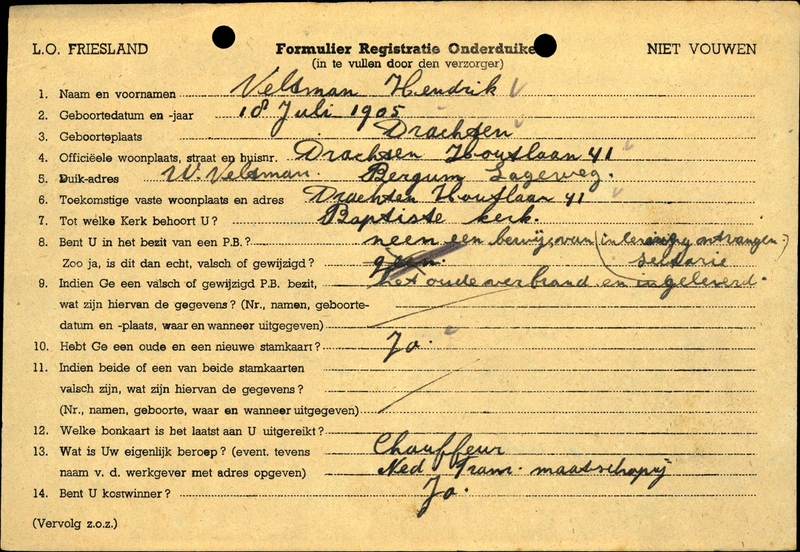 L.O. FRIESLAND Formulier Registratie Onderduike NIET VOUWEN
(in te vullen door den verzorger)
1. Naam en voornamen Veltman Hendrik
2. Geboortedatum en -jaar 18 Juli 1905
3. Geboorteplaats Drachten
4. Officiëele woonplaats, straat en huisnr. Drachten Houtlaan 41
5. Duik-adres W. Veltman. Bergum Lageweg.
6. Toekomstige vaste woonplaats en adres Drachten Houtlaan 41
7. Tot welke Kerk behoort U? Baptiste kerk.
8. Bent U in het bezit van een P.B.? neen een bewijs van (inlevering ontvangen)
Zoo ja, is dit dan echt, valsch of gewijzigd? geen.
9. Indien Ge een valsch of gewijzigd P.B. bezit, het oude verbrand en ingeleverd.
wat zijn hiervan de gegevens? (Nr., namen, geboorte-
datum en -plaats, waar en wanneer uitgegeven)
10. Hebt Ge een oude en een nieuwe stamkaart? Ja.
11. Indien beide of een van beide stamkaarten
valsch zijn, wat zijn hiervan de gegevens?
(Nr., namen, geboorte, waar en wanneer uitgegeven)
12. Welke bonkaart is het laatst aan U uitgereikt?
13. Wat is Uw eigenlijk beroep? (event. tevens Chauffeur
naam v. d. werkgever met adres opgeven) Ned Tram-maatschapij
14. Bent U kostwinner? Ja.
(Vervolg z.o.z.)